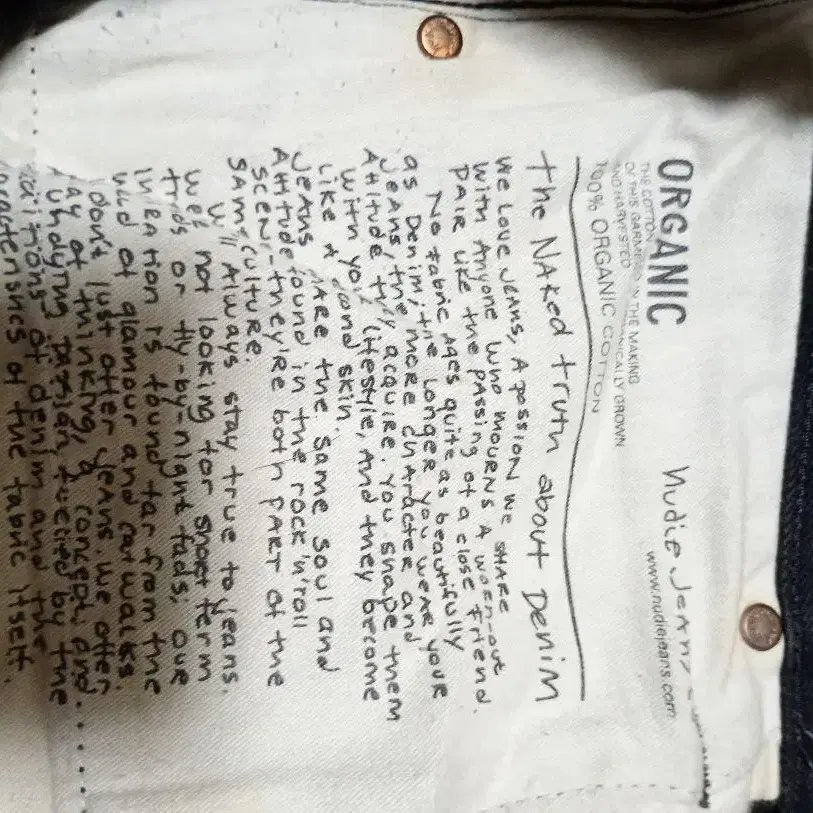 ORGANIC
THE COTTON IN THE MAKING
OF THIS GARMENT ORGANICALLY GROWN
AND HARVESTED
100% ORGANIC COTTON
Nudie Jeans
www.nudiejeans.com
The Naked truth about Denim
We love jeans, a passion we share
with anyone who mourns a worn-out
pair like the passing of a close friend.
No fabric ages quite as beautifully
as denim; the longer you wear your
jeans, the more character and
attitude they acquire. You shape them
with your lifestyle, and they become
like a second skin.
Jeans share the same soul and
attitude found in the rock'n'roll
scene-they're both part of the
same culture.
We'll always stay true to jeans.
We're not looking for short term
trends or fly-by-night fads; our
inspiration is found far from the
world of glamour and catwalks.
don't just offer jeans. We offer
way of thinking, a concept, and
by the
traditions of denim and the
characteristics of the fabric itself.